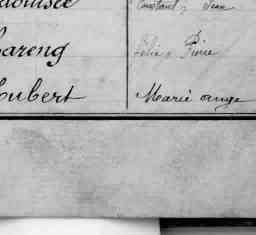 Constant, Jean
Hareng Félix Pierre
Hubert Marie ange